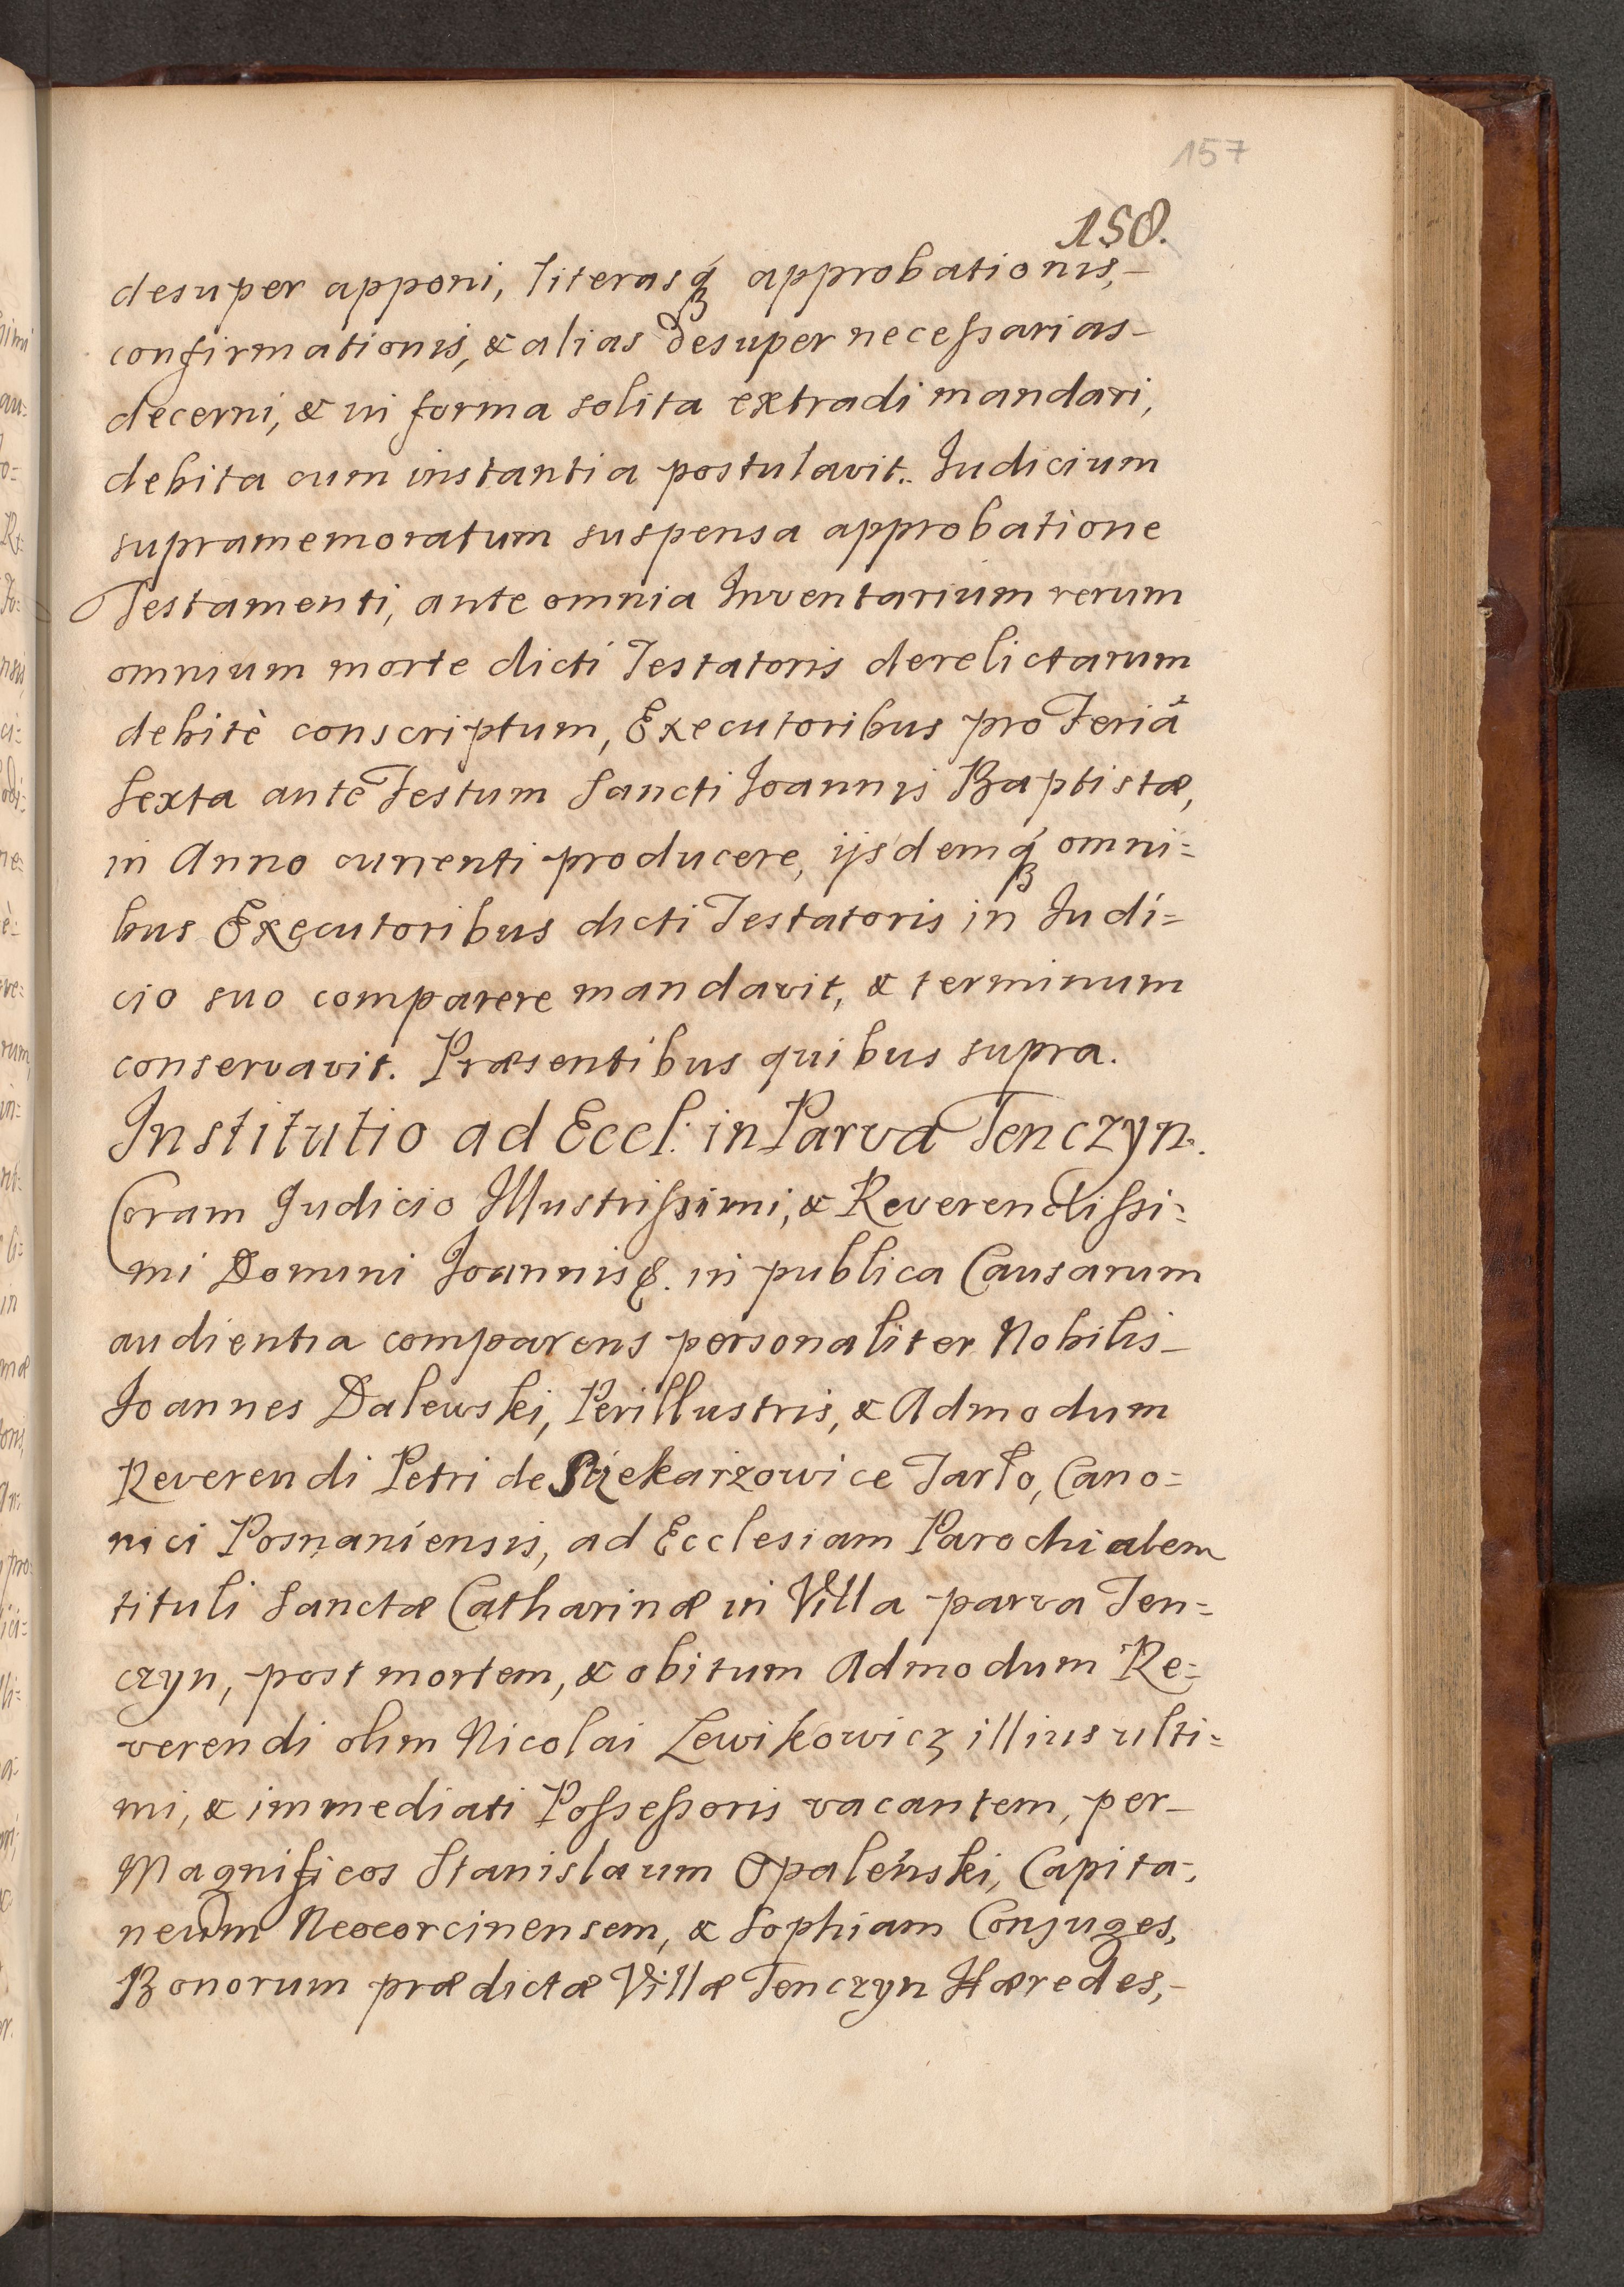 157
158.
desuper apponi, literasq́ꝫ approbationis,-
confirmationis, & alias desuper necessarias-
decerni, & in forma solita extradi mandari,
debita cum instantia postulavit. Judicium
supramemoratum suspensa approbatione
Testamenti, ante omnia Inventarium rerum
omnium morte dicti Testatoris derelictarum
debitè conscriptum, Executoribus pro Feriâ
Sexta ante Festum Sancti Joannis Baptistæ,
in Anno currenti producere, ijsdemq́ꝫ omni=
bus Executoribus dicti Testatoris in Judi=
cio suo comparere mandavit, & terminum
conservavit. Præsentibus quibus supra.
Institutio ad Eccl: in Parva Tenczyn.
Coram Judicio Illustrissimi, & Reverendissi=
mi Domini Joannis &. in publica Causarum
audientia comparens personaliter Nobilis-
Joannes Dalewski, Perillustris, & Admodum
Reverendi Petri de Tarło, Cano=
nici Posnaniensis, ad Ecclesiam Parochialem
tituli Sanctæ Catharinæ in Villa parva Ten=
czyn, post mortem, & obitum Admodum Re=
verendi olim Nicolai Lewikowicz illius ulti=
mi, & immediati Possessoris vacantem, per-
Magnificos Stanislaum Opaleński, Capita=
neum Neoeorcinensem, & Sophiam Conjuges,
Bonorum prædictæ Villæ Tenczyn Hæredes,-